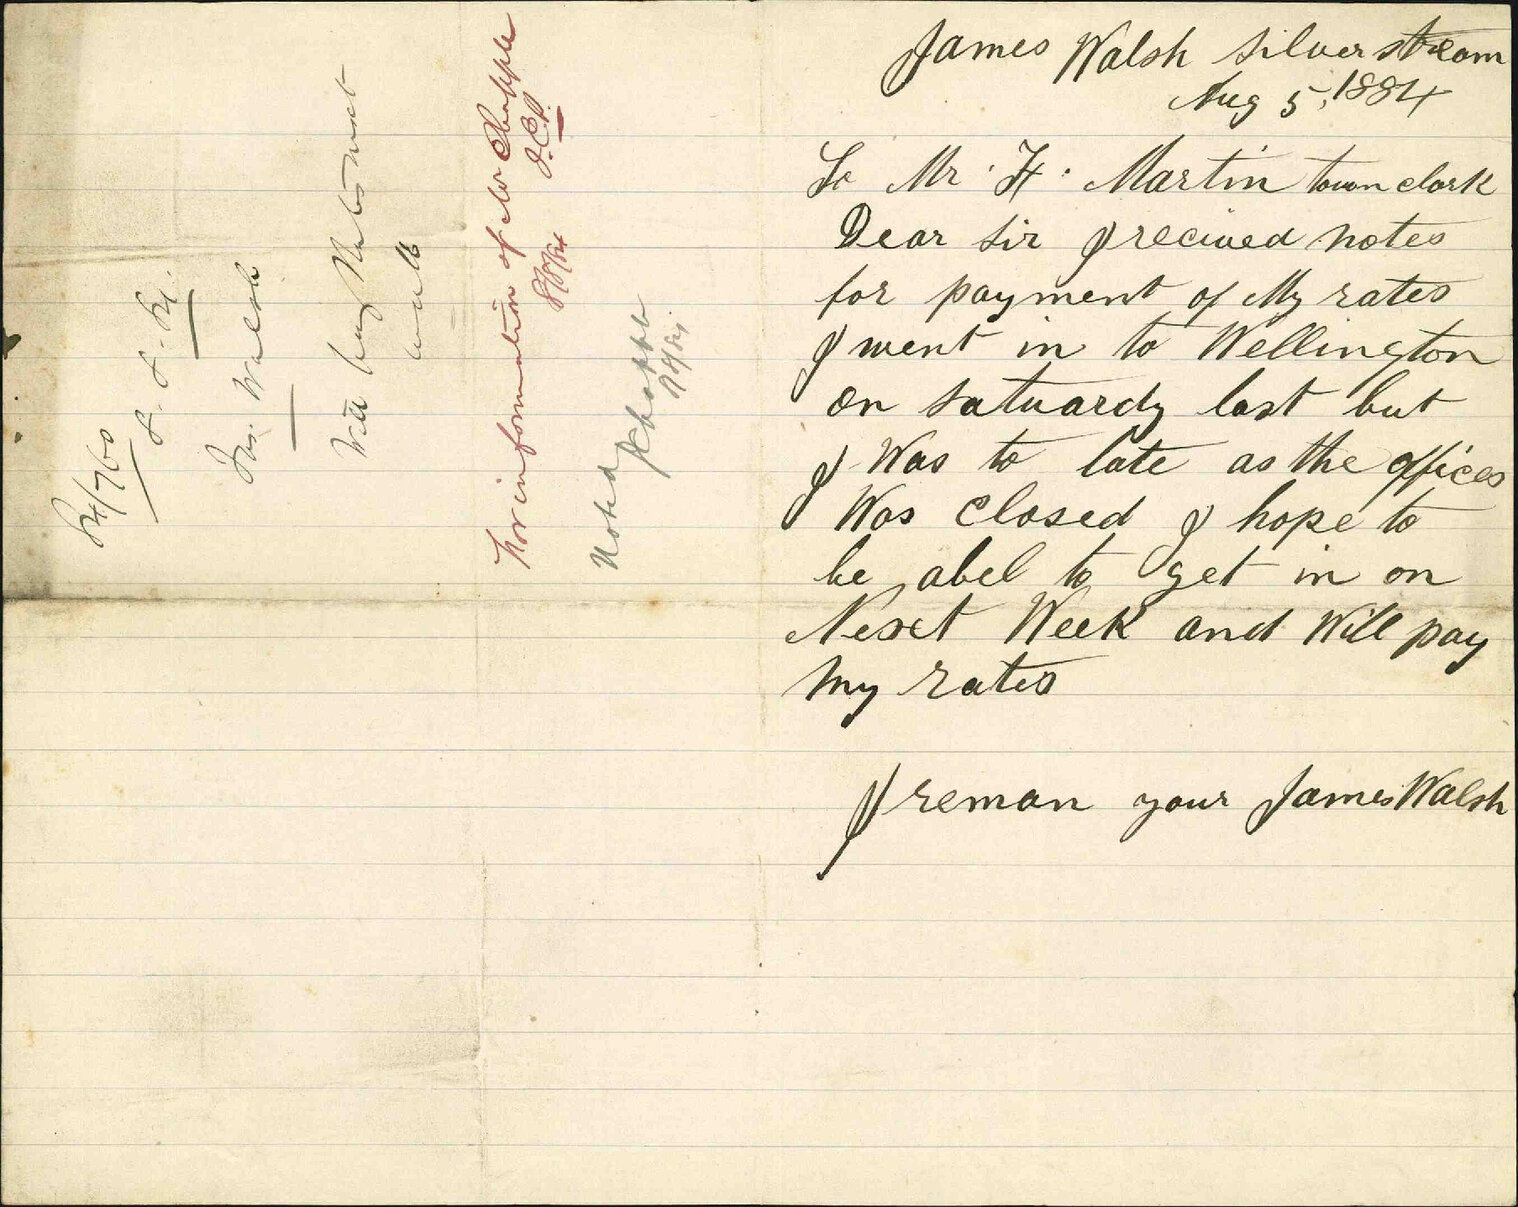 James Walsh Silverstream
Aug 5, 1884
To Mr. H. Martin town clark
Dear Sir I recived notes
for payment of My rates
I went in to Wellington
on satuardy last but
I Was to late as the offices
Was closed I hope to
be abel to get in on
Nexct Week and Will pay
my rates
I reman your James Walsh
84/760
8.8.84.
Jas. Walsh
Will pay Rates next
week
For information of Mr Chapple
J.C.P.
8/8/84
Noted